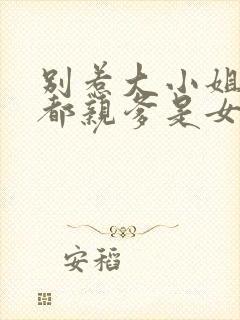 别惹大小姐
都亲爹是女
安稻